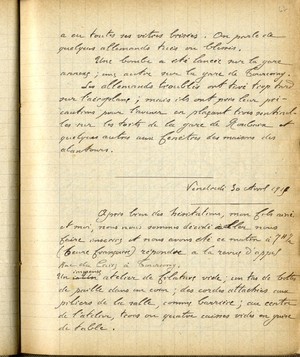 a eu toutes ses vitres brisées. On parle de
quelques allemands tués ou blessés.
Une bombe a été lancée sur la gare
annexe ; une autre sur la gare de Tourcoing.
Les allemands troublés ont tiré trop tard
sur l'aéroplane ; mais ils ont pris leur pré-
caution pour l'avenir en plaçant trois sentinel-
les sur les toits de la gare de Roubaix et
quelques autres aux fenêtres des maisons des
alentours.
Vendredi 30 Avril 191
Après bien des hésitations, mon fils aîné
et moi, nous nous sommes décidés à aller nous
faire inscrire et nous avons été ce matin à 7h½
(heure française) répondre à la revue d'appel
Rue du à Tourcoing.
Un immense atelier de filature, vide ; un tas de bottes
de paille dans un coin ; des cordes attachées aux
piliers de la salle, comme barrière ; au centre
de l'atelier, trois ou quatre caisses vides en guise
de table.